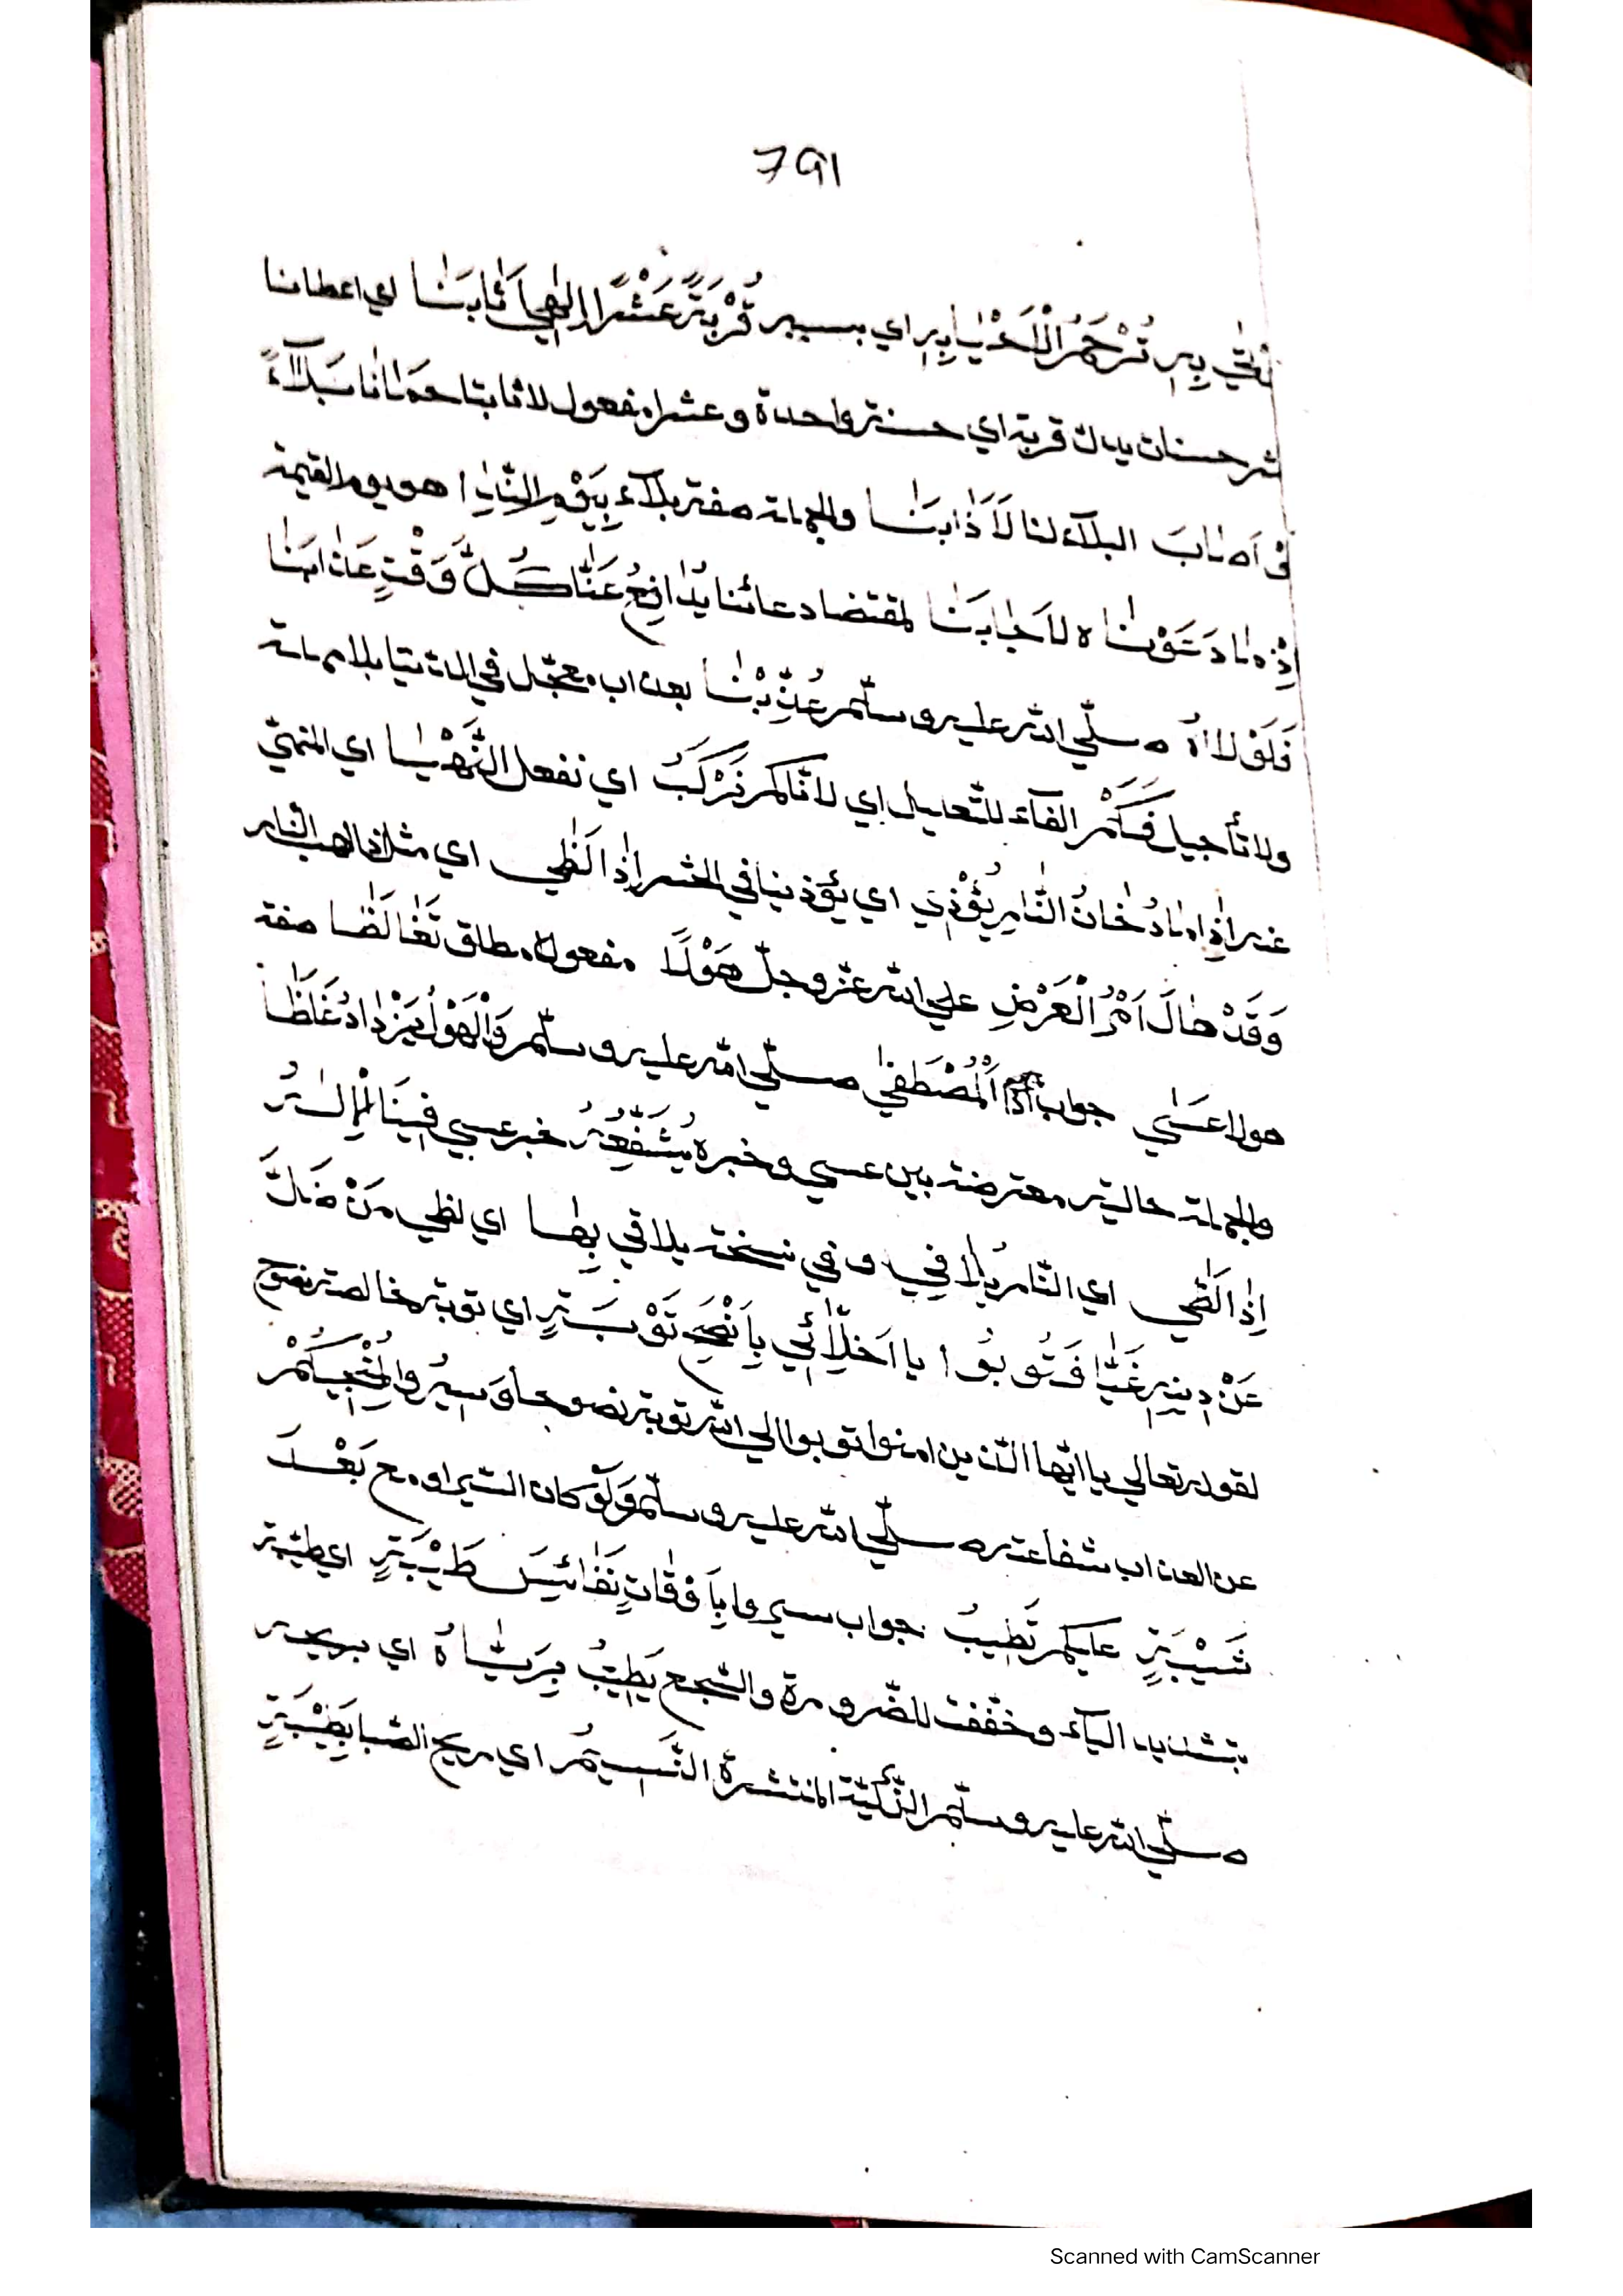 791
بِهِ تُرْحَمُ الْاَحْيَا بِهِ اي بسببه قُرْبَةً عَشْرًا اِلٰهِي اَثَابَنَا اي اعطانا
عشر حسنات بدل قربة اي حسنة واحدة وعشرا مفعول لاثابنا حمانا بَلَآءً
اَصَابَ البلآء لنا لَاَذَابَنَا والجملة صفة بلآء بِيَوْمِ التَّنَادِ هو يوم القيمة
اِذْ مَا دَعَوْنَاهُ لَاَجَابَنَا لمقتضا دعائنا يُدَافِعُ عَنَّا كُلَّ وَقْتٍ عَذَابَنَا
فَلَوْلَاهُ صلّي الله عليه وسلّم عُذِّبْنَا بعذاب معجّل في الدّنيا بلا مهلة
ولا تأجيل فَكَمْ الفآء للتّعليل اي لانّا كم نَرْكَبُ اي نفعل النَّهْيَا اي المنهيّ
عنه اِذَا مَا دُخَانُ النَّارِ يُؤْذِي اي يؤذينا في الحشر اِذَا لَظٰي اي مثل اذا لهب النّار
وَقَدْ هَالَ اَمْرُ الْعَرْضِ علي الله عزّ وجلّ هَوْلًا مفعول مطلق تَغَالَظَا صفة
هولا عَسٰي جواب اذا اَلْمُصْطَفٰي صلّي الله عليه وسلّم وَالْهَوْلُ يَزْدَادُ غَلَظًا
والجملة حالية معترضة بين عسي وخبره يُشَفِّعُهُ خبر عسي فِينَا الْاِلٰهُ
اِذَا لَظٰي اي النّار يُلَافِي وفي نسخة يلاقي بِهَا اي لظي مَنْ ضَلَّ
عَنْ دِينِهِ غَيًّا فَتُوبُوا يا اَخِلَّائِي بِاَنْصَحِ تَوْبَةٍ اي توبة خالصة نصوح
لقوله تعالي يا ايّها الّذين امنوا توبوا الي الله توبة نصوحا وَسِيرُوا لِمُنْجِيكُمْ
عن العذاب بشفاعته صلّي الله عليه وسلّم وَلَوْ كان السّير او مع بَعْدَ
شَيْبَةٍ عليكم تَطِيبُ جواب سيروا بِاَوْقَاتٍ نَفَائِسَ طَيْبَةٍ اي طيّبة
بتشديد اليآء وخفّفت للضّرورة والسّجع يَطِيبُ بِرَيَّاهُ اي بريحه
صلّي الله عليه وسلّم الزّكيّة المنتشرة النَّسِيمُ اي ريح الصّبا بِطَيْبَةٍ
Scanned with CamScanner